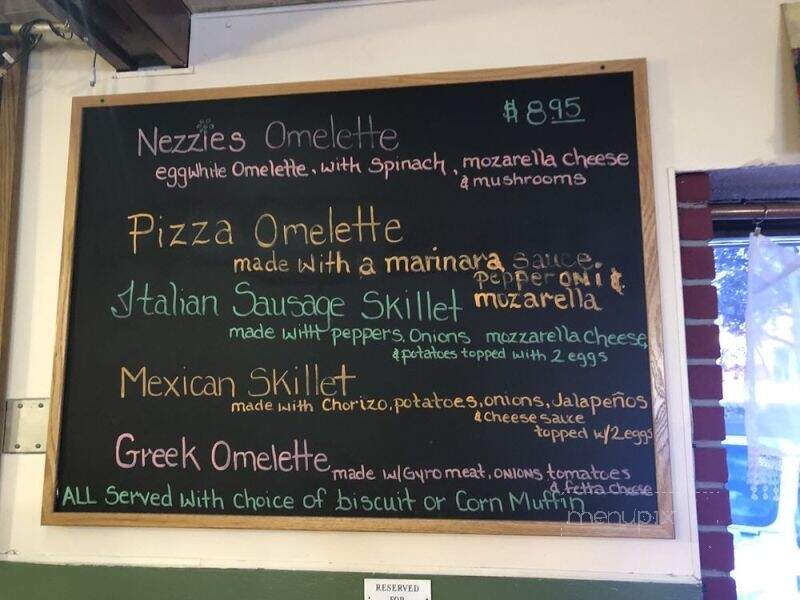 $ 8.95
Nezzies Omelette
eggwhite Omelette, with Spinach, mozarella cheese
& mushrooms
Pizza Omelette
made with a marinara sauce,
pepperoni &
mozarella
Italian Sausage Skillet
made with peppers, onions mozzarella cheese,
& potatoes topped with 2 eggs
Mexican Skillet
made with Chorizo, potatoes, onions, Jalapeños
& cheese sauce
topped w/ 2 eggs
Greek Omelette
made w/ Gyro meat, onions tomatoes
& fetta cheese
ALL Served with choice of biscuit or Corn Muffin
menupix
RESERVED
FOR